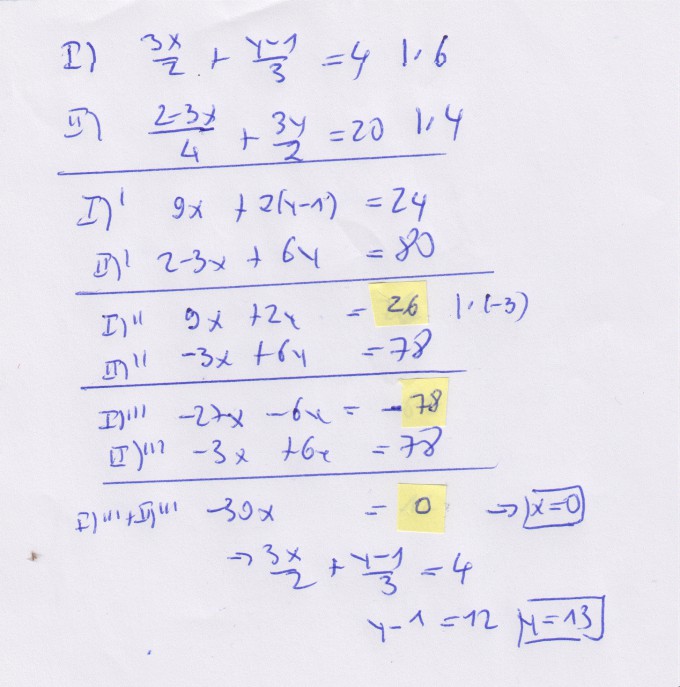 I) 3x/2 + y-1/3 = 4 | · 6
II) 2-3x/4 + 3y/2 = 20 | · 4
I)' 9x + 2(y-1) = 24
II)' 2-3x + 6y = 80
I)'' 9x + 2y = 26 | · (-3)
II)'' -3x + 6y = 78
I)''' -27x - 6y = -78
II)''' -3x + 6y = 78
I)''' + II)''' -30x = 0 → x=0
→ 3x/2 + y-1/3 = 4
y-1 = 12 y=13